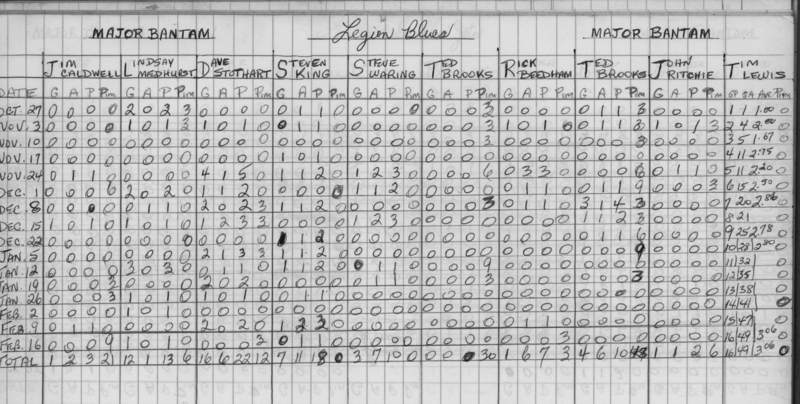 MAJOR BANTAM Legion Blues MAJOR BANTAM
JIM CALDWELL LINDSAY MEDHURST DAVE STOTHART STEVEN KING STEVE WARING TED BROOKS RICK BEEDHAM TED BROOKS JOHN RITCHIE TIM LEWIS
DATE G A P Pim G A P Pim G A P Pim G A P Pim G A P Pim G A P Pim G A P Pim G A P Pim G A P Pim GP GA AVE Pim
OCT. 27 0 0 0 0 2 0 2 3 0 0 0 0 0 1 1 0 0 0 0 0 0 0 0 3 0 0 0 0 0 1 1 3 0 0 0 0 1 1 1.00
NOV. 3 0 0 0 0 1 0 1 3 1 0 1 0 0 1 1 0 0 0 0 0 0 0 0 3 1 0 1 0 0 1 1 3 1 0 1 3 2 4 2.00
NOV. 10 0 0 0 0 0 0 0 0 0 0 0 0 0 0 0 0 0 0 0 0 0 0 0 3 0 0 0 0 0 0 0 3 0 0 0 0 3 5 1.67
NOV. 17 0 0 0 0 0 0 0 0 0 0 0 0 1 0 1 0 0 0 0 0 0 0 0 0 0 0 0 0 0 0 0 0 0 0 0 0 4 11 2.75
NOV. 24 0 1 1 0 0 0 0 0 4 1 5 0 1 1 2 0 1 2 3 0 0 0 0 6 0 3 3 0 0 0 0 6 0 1 1 0 5 11 2.20
DEC. 1 0 0 0 6 2 0 2 0 1 1 2 0 0 0 0 0 1 1 2 0 0 0 0 0 0 1 1 0 0 1 1 9 0 0 0 3 6 15 2.50
DEC. 8 0 0 0 0 0 1 1 0 2 0 2 3 1 1 2 0 0 0 0 0 0 0 0 3 0 1 1 0 3 1 4 3 0 0 0 0 7 20 2.86
DEC. 15 1 0 1 0 1 0 1 0 1 2 3 3 0 0 0 0 1 2 3 0 0 0 0 0 0 0 0 0 1 1 2 3 0 0 0 0 8 21
DEC. 22 0 0 0 0 0 0 0 0 0 0 0 0 1 1 2 0 0 0 0 0 0 0 0 0 0 0 0 0 0 1 1 6 0 0 0 0 9 25 2.78
JAN. 5 0 0 0 0 0 0 0 0 2 1 3 3 1 1 2 0 0 0 0 0 0 0 0 0 0 0 0 0 0 0 0 9 0 0 0 0 10 28 2.80
JAN. 12 0 0 0 0 3 0 3 0 0 1 1 0 1 1 2 0 0 1 1 0 0 0 0 9 0 0 0 0 0 0 0 0 0 0 0 11 32 0
JAN. 19 0 0 0 3 0 0 0 0 2 0 2 0 0 0 0 0 0 1 1 0 0 0 0 3 0 0 0 0 0 0 0 3 0 0 0 0 12 35
JAN 26 0 0 0 3 1 0 1 0 1 0 1 0 0 1 1 0 0 0 0 0 0 0 0 0 0 0 0 0 0 0 0 0 0 0 0 0 13 38
FEB. 2 0 0 0 0 1 0 1 0 0 0 0 0 0 0 0 0 0 0 0 0 0 0 0 0 0 0 0 0 0 0 0 0 0 0 0 0 14 41 0
FEB. 9 0 1 1 0 0 0 0 0 2 0 2 0 1 2 3 0 0 0 0 0 0 0 0 0 0 1 1 0 0 0 0 0 0 0 0 0 15 47 0
FEB. 16 0 0 0 9 1 0 1 0 0 0 0 3 0 1 1 0 0 0 0 0 0 0 0 0 0 0 0 3 0 0 0 0 0 0 0 0 16 49 3.06 0
TOTAL 1 2 3 21 12 1 13 6 16 6 22 12 7 11 18 0 3 7 10 0 0 0 0 30 1 6 7 3 4 6 10 48 1 1 2 6 16 49 3.06 0